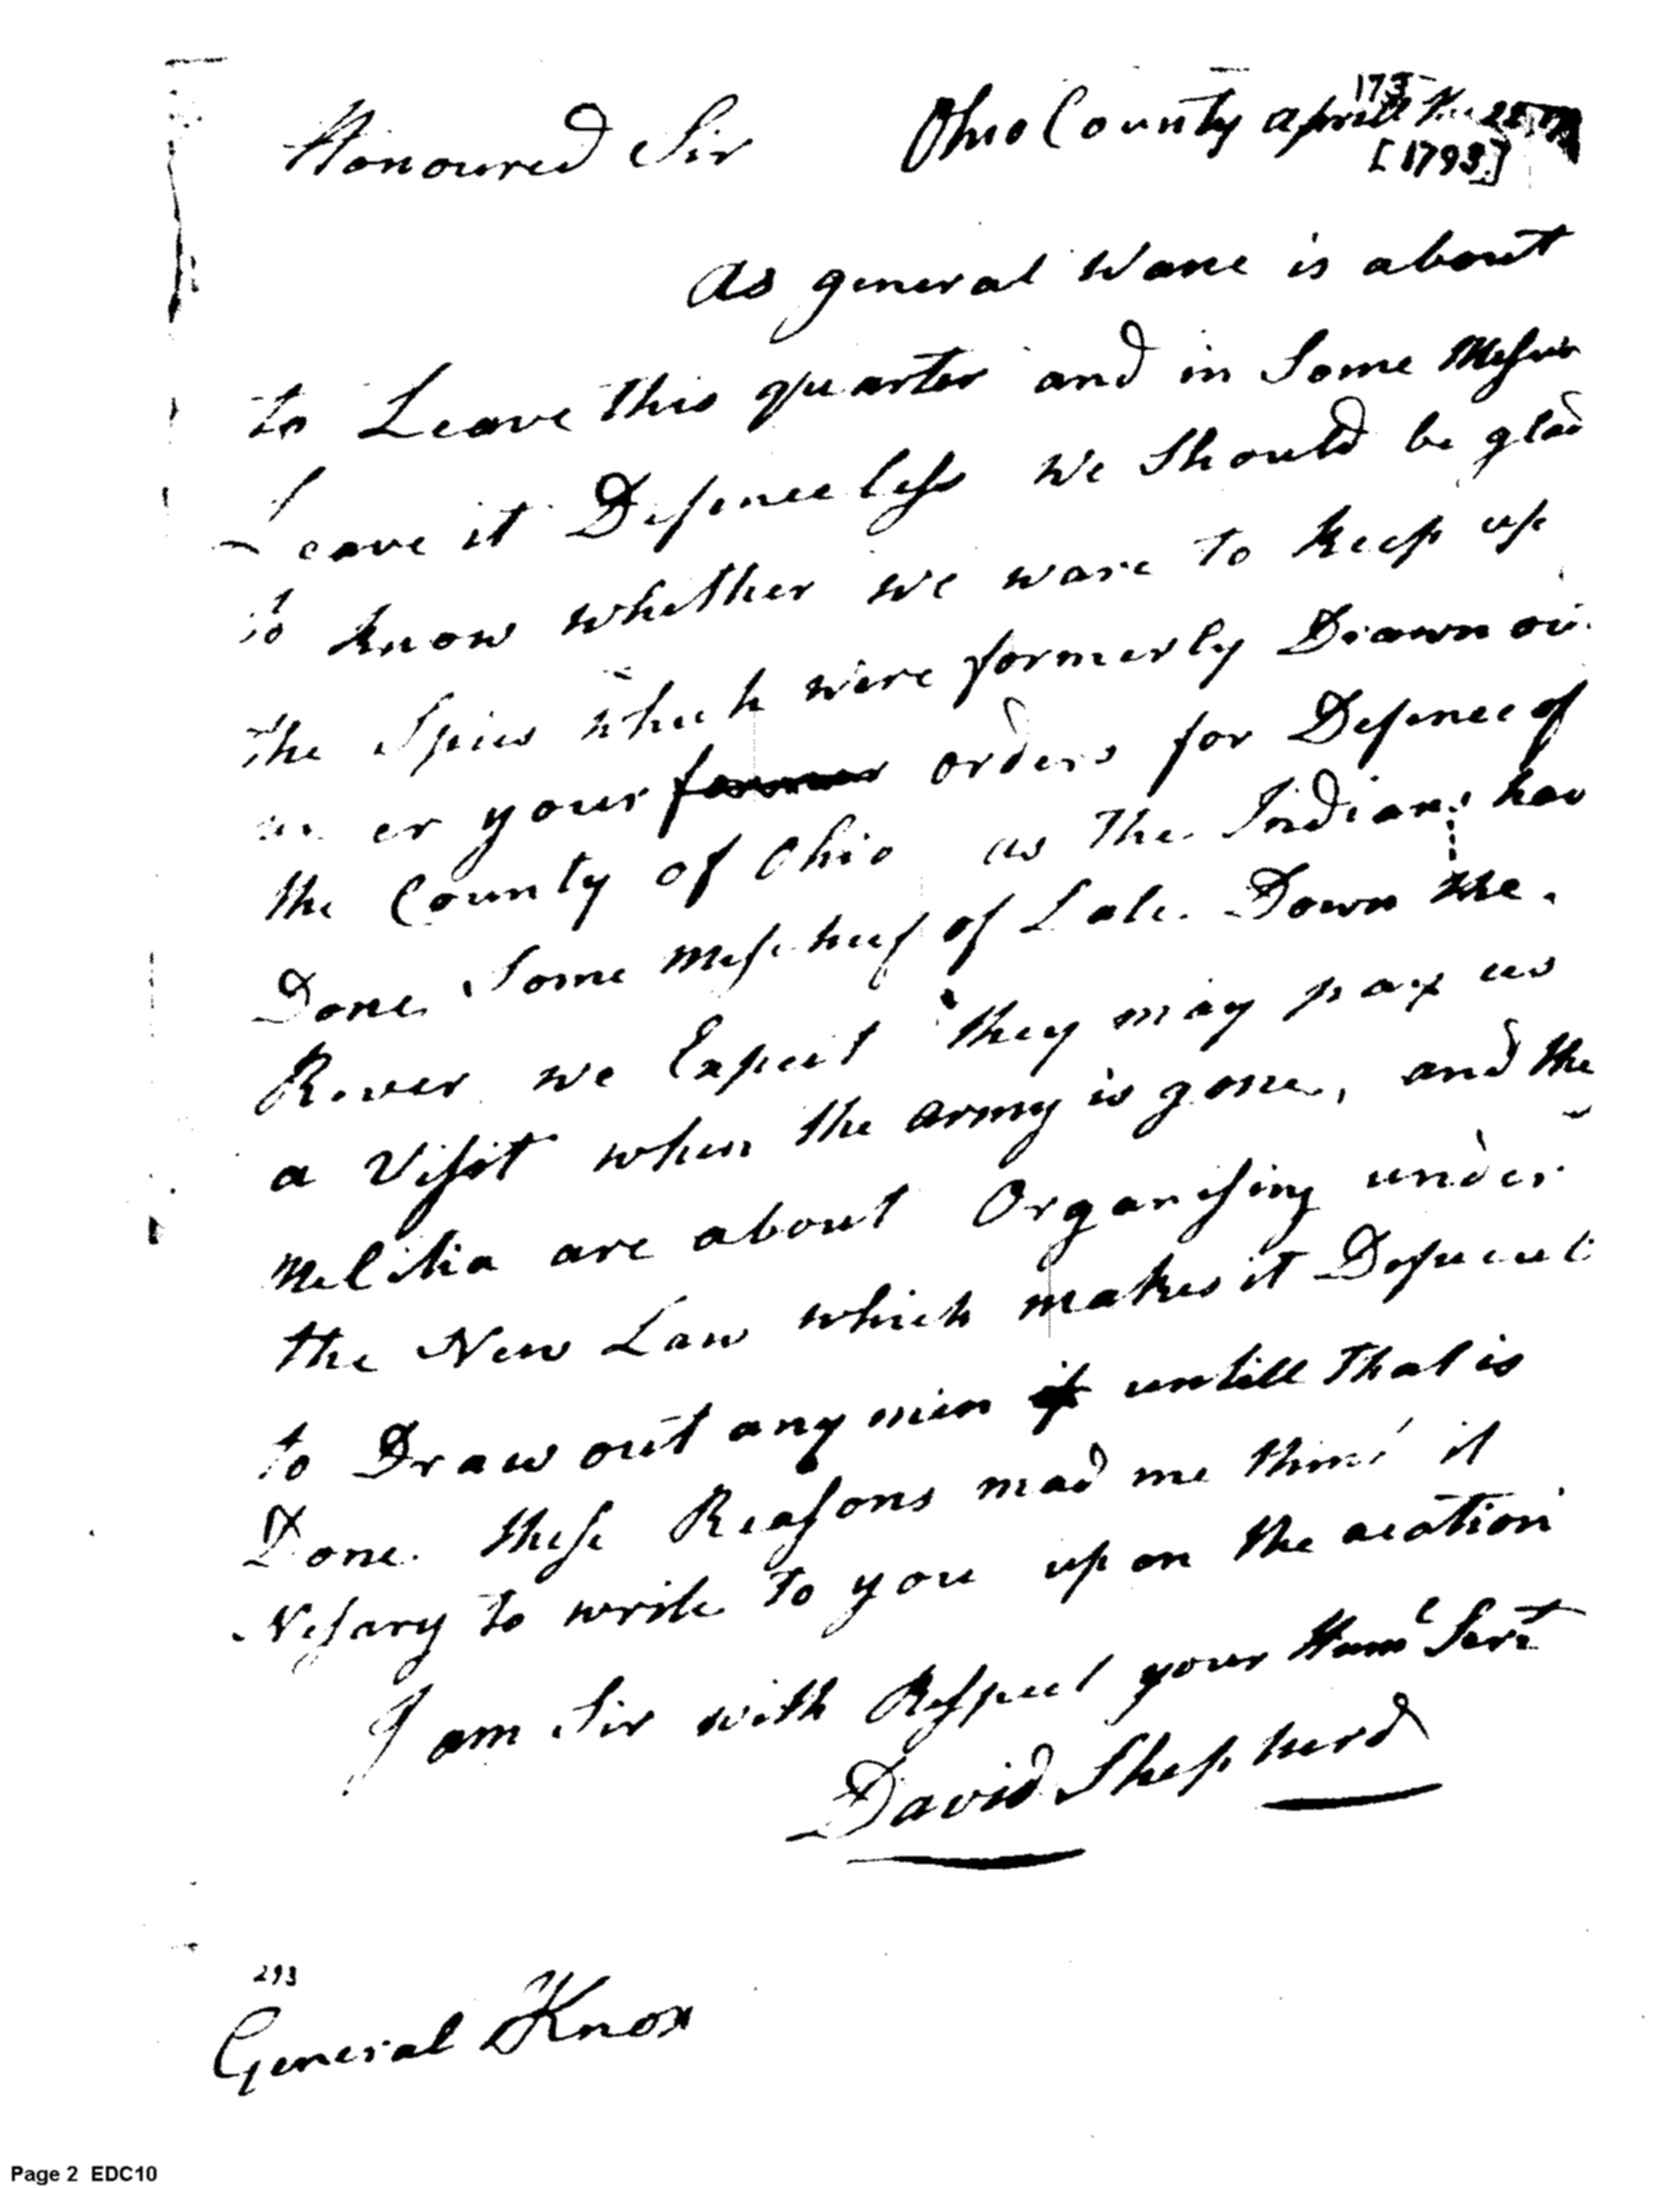 Honoured Sir Ohio County aprill the
[1793]
As general Wane is about
to Leave this quarter and in Some Mesure
Leave it Defenceless We Should be glad
to know whether we ware to keep up
the Spies which were formerly Drawn
er your former orders for Defence of
the County of Ohio as the Indians hav
Done Some Mischeef of Late Down the
River we Expect they may pay us
a Visit when the army is gone, and the
Melitia are about Organising under
the New Law which makes it
to Draw out any men untill that is
Done these Reasons mad me think it
Nesary to write to you up on the
I am Sir with Respect your Huml Servt
David Shepherd
293
General Knox
Page 2 EDC10